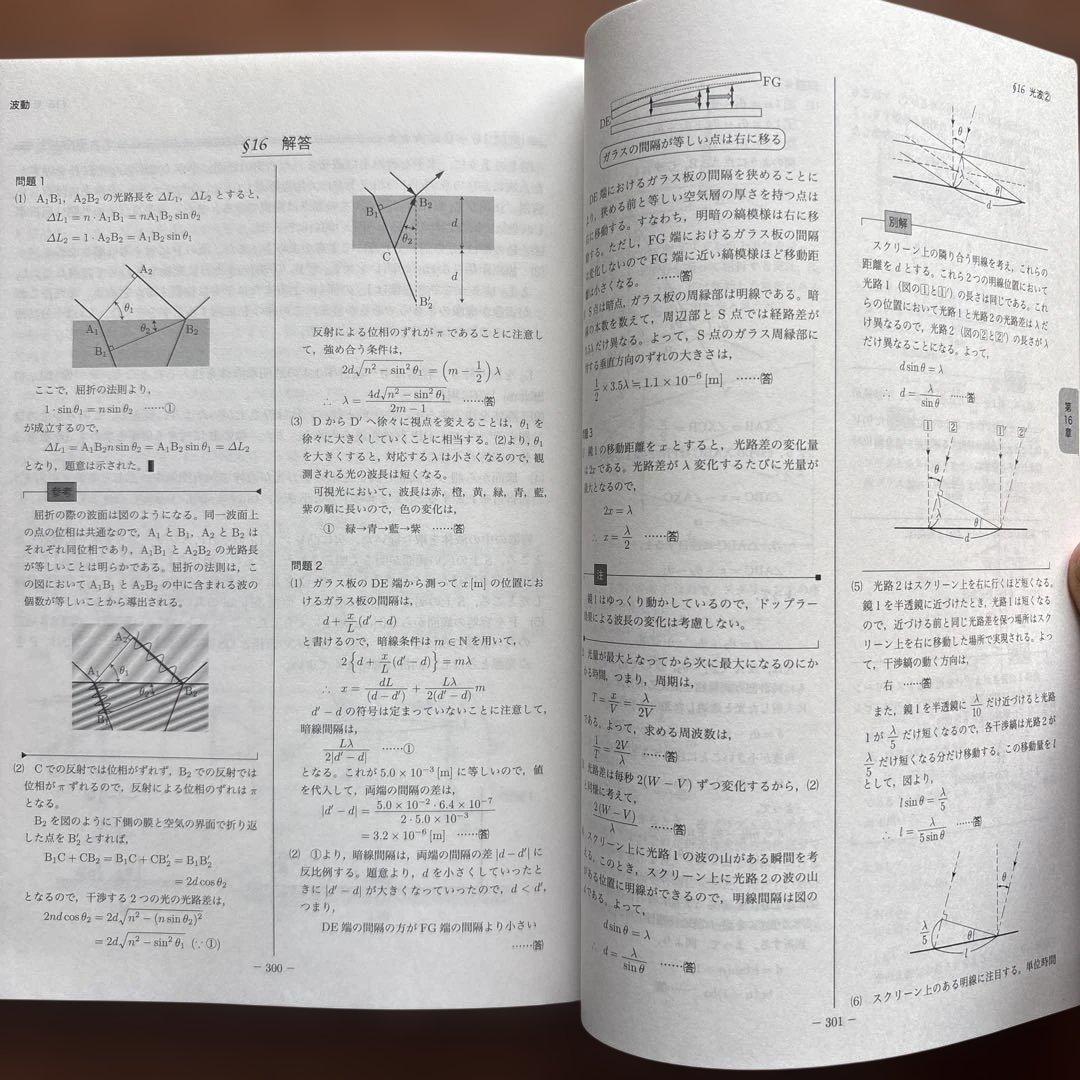 波動
§16 解答
問題1
(1) A₁B₁, A₂B₂ の光路長を ΔL₁, ΔL₂ とすると,
ΔL₁ = n・A₁B₁ = nA₁B₂ sin θ₂
ΔL₂ = 1・A₂B₂ = A₁B₂ sin θ₁
A₂
θ₁
A₁
θ₂
B₂
B₁
ここで, 屈折の法則より,
1・sin θ₁ = n sin θ₂ ……①
が成立するので,
ΔL₁ = A₁B₂n sin θ₂ = A₁B₂ sin θ₁ = ΔL₂
となり, 題意は示された。
参考
屈折の際の波面は図のようになる。同一波面上
の点の位相は共通なので, A₁ と B₁, A₂ と B₂ は
それぞれ同位相であり, A₁B₁ と A₂B₂ の光路長
が等しいことは明らかである。屈折の法則は, こ
の図において A₁B₁ と A₂B₂ の中に含まれる波の
個数が等しいことから導出される。
A₂
A₁
θ₁
θ₂
B₂
B₁
(2) C での反射では位相がずれず, B₂ での反射では
位相が π ずれるので, 反射による位相のずれは π
となる。
B₂ を図のように下側の膜と空気の界面で折り返
した点を B₂′ とすれば,
B₁C + CB₂ = B₁C + CB₂′ = B₁B₂′
= 2d cos θ₂
となるので, 干渉する2つの光の光路差は,
2nd cos θ₂ = 2d√n² − (n sin θ₂)²
= 2d√n² − sin² θ₁ (∵①)
B₁
B₂
θ₂
d
C
d
B₂′
反射による位相のずれが π であることに注意し
て, 強め合う条件は,
2d√n² − sin² θ₁ = (m − 1/2) λ
∴ λ = 4d√n² − sin² θ₁ / 2m − 1 ……(答)
(3) D から D′ へ徐々に視点を変えることは, θ₁ を
徐々に大きくしていくことに相当する。(2)より, θ₁
を大きくすると, 対応する λ は小さくなるので, 観
測される光の波長は短くなる。
可視光において, 波長は赤, 橙, 黄, 緑, 青, 藍,
紫の順に長いので, 色の変化は,
① 緑→青→藍→紫 ……(答)
問題2
(1) ガラス板の DE 端から測って x [m] の位置にお
けるガラス板の間隔は,
d + x/L (d′ − d)
と書けるので, 暗線条件は m ∈ N を用いて,
2{d + x/L (d′ − d)} = mλ
∴ x = dL/(d − d′) + Lλ/2(d′ − d) m
d′ − d の符号は定まっていないことに注意して,
暗線間隔は,
Lλ/2|d′ − d| ……①
となる。これが 5.0 × 10⁻³ [m] に等しいので, 値
を代入して, 両端の間隔の差は,
|d′ − d| = 5.0 × 10⁻²・6.4 × 10⁻⁷ / 2・5.0 × 10⁻³
= 3.2 × 10⁻⁶ [m] ……(答)
(2) ①より, 暗線間隔は, 両端の間隔の差 |d − d′| に
反比例する。題意より, d を小さくしていったと
きに |d′ − d| が大きくなっていったので, d < d′,
つまり,
DE 端の間隔の方が FG 端の間隔より小さい
……(答)
− 300 −
FG
DE
ガラスの間隔が等しい点は右に移る
DE 端におけるガラス板の間隔を狭めることに
より, 狭める前と等しい空気層の厚さを持つ点は
に移動する。すなわち, 明暗の縞模様は右に移
する。ただし, FG 端におけるガラス板の間隔
変化しないので FG 端に近い縞模様ほど移動距
は小さくなる。 ……(答)
S 点は暗点, ガラス板の周縁部は明線である。暗
の本数を数えて, 周辺部と S 点では経路差が
.5λ だけ異なる。よって, S 点のガラス周縁部に
する垂直方向のずれの大きさは,
1/2 × 3.5λ ≒ 1.1 × 10⁻⁶ [m] ……(答)
題3
鏡1の移動距離を x とすると, 光路差の変化量
2x である。光路差が λ 変化するたびに光量が
最大となるので,
2x = λ
∴ x = λ/2 ……(答)
注
鏡1はゆっくり動かしているので, ドップラー
効果による波長の変化は考慮しない。
光量が最大となってから次に最大になるのにか
かる時間, つまり, 周期は,
T = x/V = λ/2V
である。よって, 求める周波数は,
1/T = 2V/λ ……(答)
光路差は毎秒 2(W − V) ずつ変化するから, (2)
と同様に考えて,
2(W − V)/λ ……(答)
スクリーン上に光路1の波の山がある瞬間を考
える。このとき, スクリーン上に光路2の波の山
がある位置に明線ができるので, 明線間隔は図の
である。よって,
d sin θ = λ
∴ d = λ/sin θ ……(答)
− 301 −
§16 光波②
θ
θ
d
別解
スクリーン上の隣り合う明線を考え, これらの
距離を d とする。これら2つの明線位置において
光路1(図の①と①′)の長さは同じである。これ
らの位置において光路1と光路2の光路差は λ だ
け異なるので, 光路2(図の②と②′)の長さが λ
だけ異なることになる。よって,
d sin θ = λ
∴ d = λ/sin θ ……(答)
第16章
1 2 1′ 2′
θ
λ
θ
d
(5) 光路2はスクリーン上を右に行くほど短くなる。
鏡1を半透鏡に近づけたとき, 光路1は短くなる
ので, 近づける前と同じ光路差を保つ場所はスク
リーン上を右に移動した場所で実現される。よっ
て, 干渉縞の動く方向は,
右 ……(答)
また, 鏡1を半透鏡に λ/10 だけ近づけると光路
1が λ/5 だけ短くなるので, 各干渉縞は光路2が
λ/5 だけ短くなる分だけ移動する。この移動量を l
として, 図より,
l sin θ = λ/5
∴ l = λ/5 sin θ ……(答)
θ
λ/5
θ
l
(6) スクリーン上のある明線に注目する。単位時間